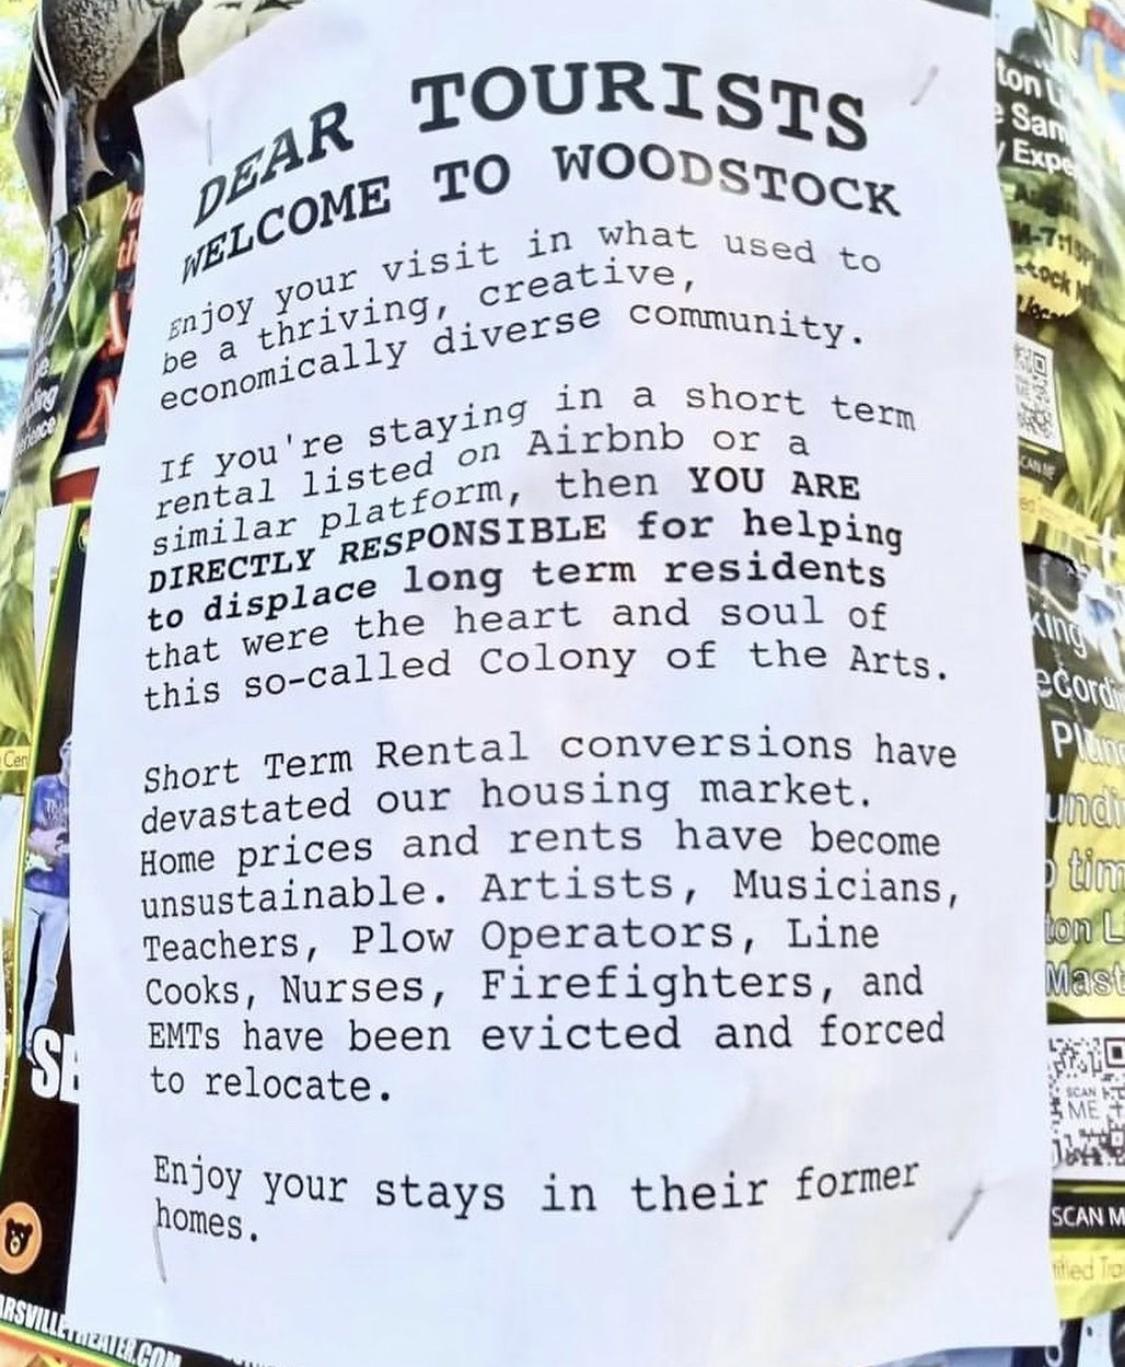 DEAR TOURISTS
WELCOME TO WOODSTOCK
Enjoy your visit in what used to
be a thriving, creative,
economically diverse community.
If you're staying in a short term
rental listed on Airbnb or a
similar platform, then YOU ARE
DIRECTLY RESPONSIBLE for helping
to displace long term residents
that were the heart and soul of
this so-called Colony of the Arts.
Short Term Rental conversions have
devastated our housing market.
Home prices and rents have become
unsustainable. Artists, Musicians,
Teachers, Plow Operators, Line
Cooks, Nurses, Firefighters, and
EMTs have been evicted and forced
to relocate.
Enjoy your stays in their former
homes.
ton L
San
Expe
CAN ME
king
ecordi
Plun
undi
tim
ton L
Mast
SCAN
ME
SCAN M
ified Tra
Cen
SE
ARSVILLETHEATER.COM